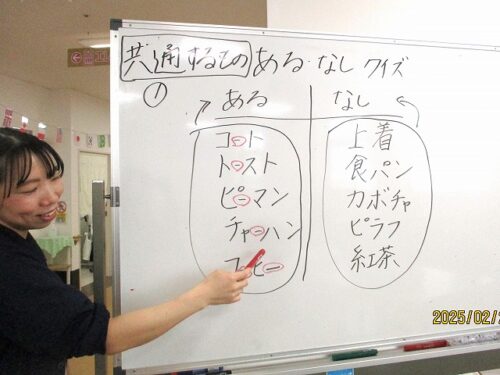 共通するもの ある・なし クイズ
① ある なし
コート 上着
トースト 食パン
ピーマン カボチャ
チャーハン ピラフ
コーヒー 紅茶
2025/02/2